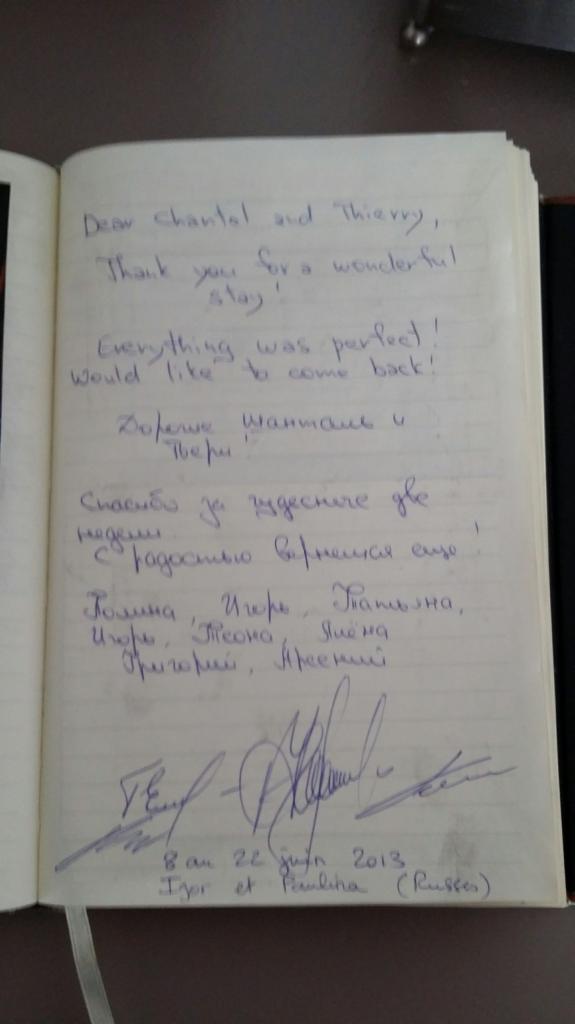 Dear Chantal and Thierry,
Thank you for a wonderful
stay!
Everything was perfect!
Would like to come back!
Дорогие Шанталь и
Тьери!
Спасибо за чудесные две
недели.
С радостью вернемся еще!
Полина, Игорь, Татьяна,
Игорь, Теона, Алёна
Григорий, Арсений
8 au 22 juin 2013
Igor et Paulina (Russes)